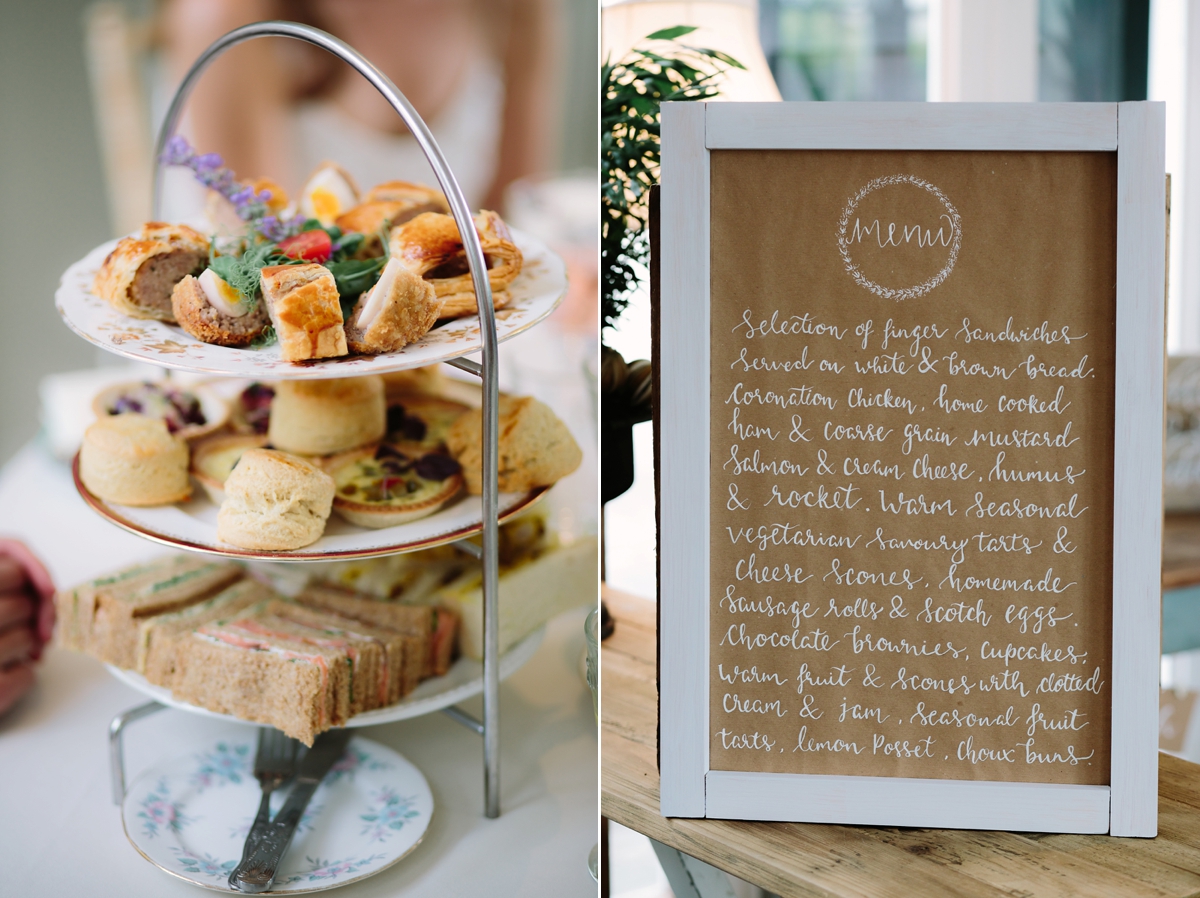 menu
Selection of finger Sandwiches
Served on white & brown bread.
Coronation Chicken, home cooked
ham & coarse grain mustard
Salmon & cream cheese, humus
& rocket. Warm Seasonal
vegetarian Savoury tarts &
Cheese Scones, homemade
Sausage rolls & Scotch eggs.
Chocolate brownies, cupcakes,
warm fruit & scones with clotted
Cream & jam, Seasonal fruit
tarts, lemon Posset, Choux buns.